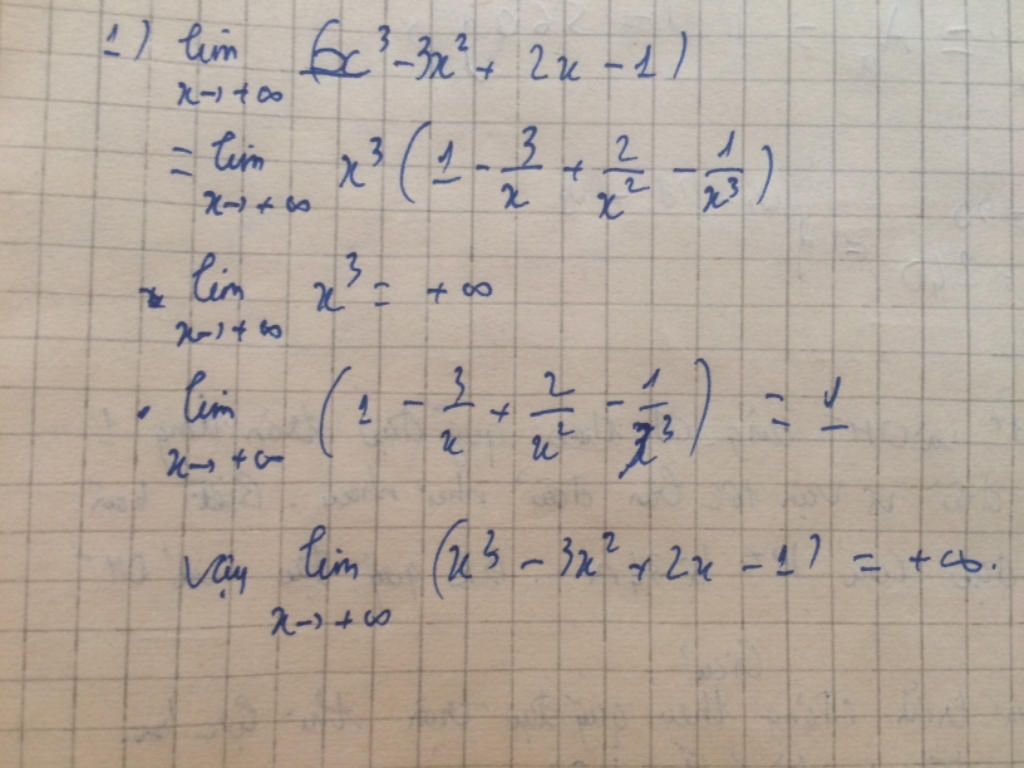 1) lim x→+∞ (x³ - 3x² + 2x - 1)
= lim x→+∞ x³ (1 - 3/x + 2/x² - 1/x³)
* lim x→+∞ x³ = +∞
• lim x→+∞ (1 - 3/x + 2/x² - 1/x³) = 1
Vậy lim x→+∞ (x³ - 3x² + 2x - 1) = +∞.